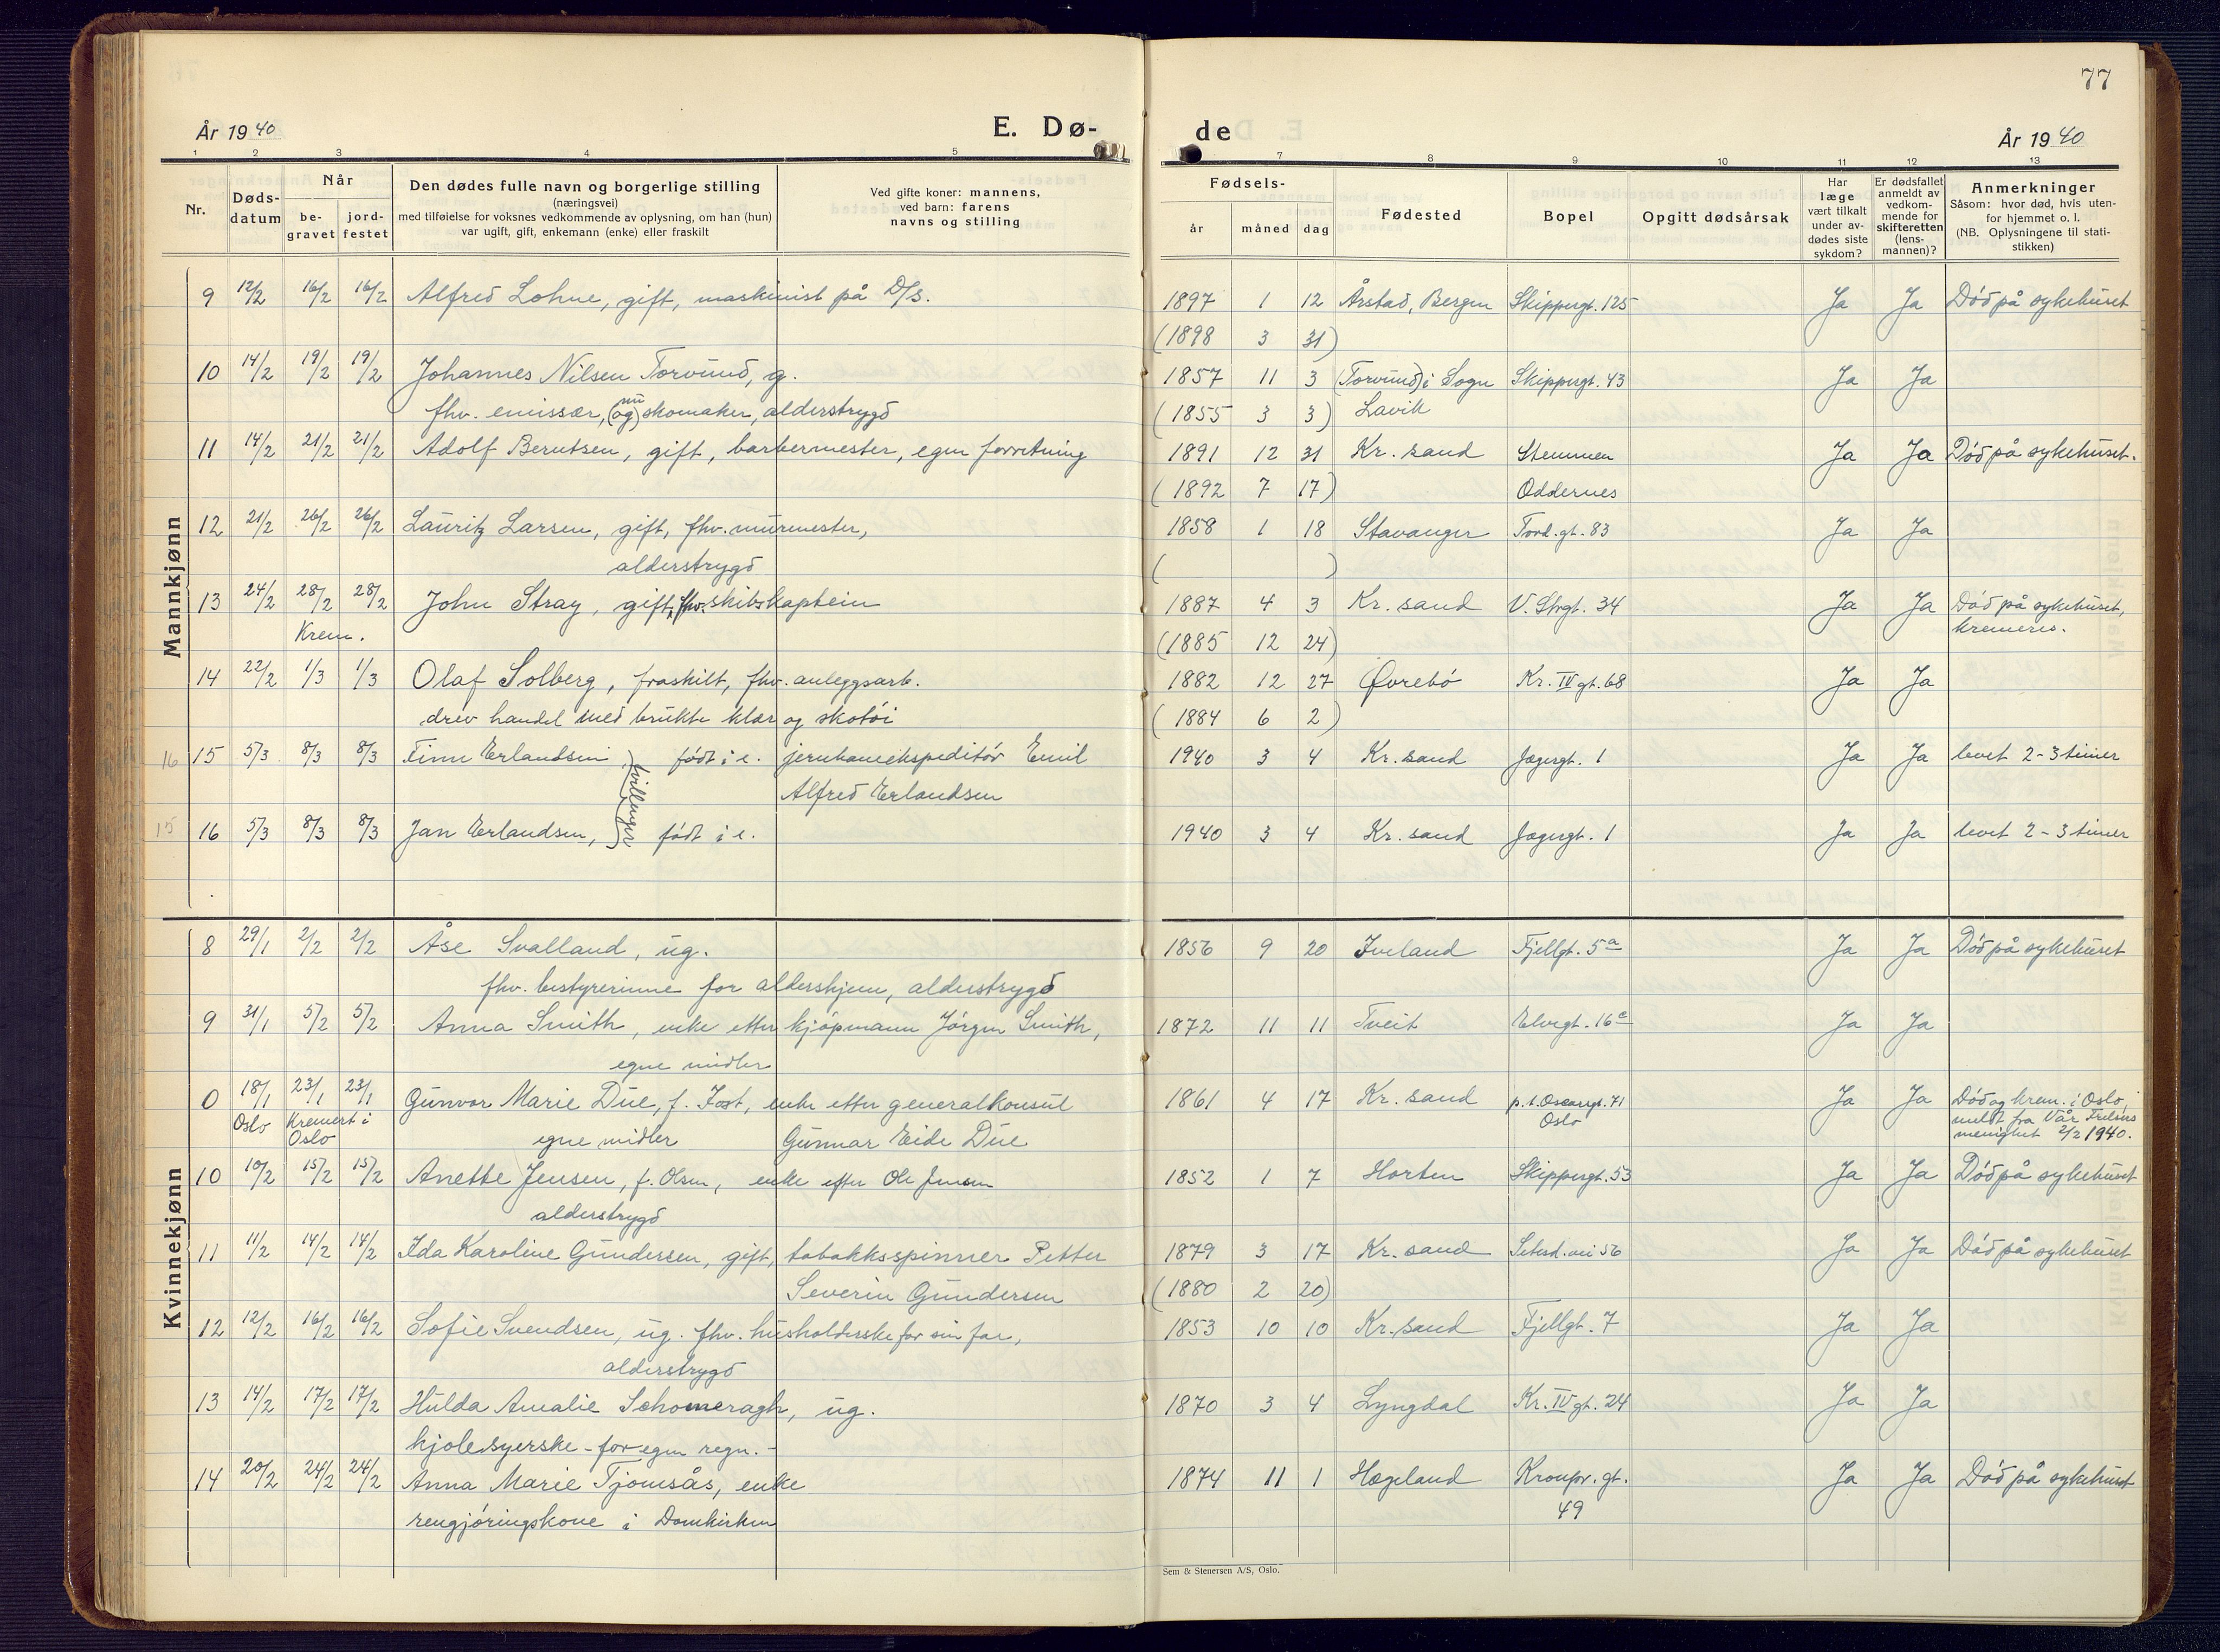 77
År 1940
E. Dø-
de
År 1940
1 2 3 4 5
7 8 9 10 11 12 13
Nr.
Døds-
datum
Når
be-
gravet
jord-
festet
Den dødes fulle navn og borgerlige stilling
(næringsvei)
med tilføielse for voksnes vedkommende av oplysning, om han (hun)
var ugift, gift, enkemann (enke) eller fraskilt
Ved gifte koner: mannens,
ved barn: farens
navns og stilling
Fødsels-
år måned dag
Fødested
Bopel
Opgitt dødsårsak
Har
læge
vært tilkalt
under av-
dødes siste
sykdom?
Er dødsfallet
anmeldt av
vedkom-
mende for
skifteretten
(lens-
mannen)?
Anmerkninger
Såsom: hvor død, hvis uten-
for hjemmet o. l.
(NB. Oplysningene til stati-
stikken)
Mannkjønn
9 12/2 16/2 16/2 Alfred Lohne, gift, maskinist på D/S. 1897 1 12 Årstad, Bergen Skippergt. 125 Ja Ja Död på sykehuset
(1898 3 31)
10 14/2 19/2 19/2 Johannes Nilsen Torvund, g. 1857 11 3 (Torvund) i Sogn Skippergt. 43 Ja Ja
nu
fhv. emissær, (og) skomaker, alderstrygd (1855 3 3) Lavik
11 14/2 21/2 21/2 Adolf Berntsen, gift, barbermester, egen forretning 1891 12 31 Kr. sand Stemmen Ja Ja Död på sykehuset.
(1892 7 17) Oddernes
12 21/2 26/2 26/2 Lauritz Larsen, gift, fhv. murmester, 1858 1 18 Stavanger Tord. gt. 83 Ja Ja
alderstrygd ( )
13 24/2 28/2 28/2 John Stray, gift, fhv. skibskaptein 1887 4 3 Kr. sand V. Strgt. 34 Ja Ja Död på sykehuset,
Krem. (1885 12 24) kremeres.
14 22/2 1/3 1/3 Olaf Solberg, fraskilt, fhv. anleggsarb. 1882 12 27 Øvrebö Kr. IV gt. 68 Ja Ja
drev handel med brukte klær og skotöi (1884 6 2)
16 15 5/3 8/3 8/3 Finn Erlandsen födt i e. jernbaneekspeditör Emil 1940 3 4 Kr. sand Jægergt. 1 Ja Ja levet 2-3 timer
tvillinger
Alfred Erlandsen
15 16 5/3 8/3 8/3 Jan Erlandsen, födt i e. 1940 3 4 Kr. sand Jægergt. 1 Ja Ja levet 2-3 timer
Kvinnekjønn
8 29/1 2/2 2/2 Åse Svalland, ug. 1856 9 20 Iveland Fjellgt. 5a Ja Ja Död på sykehuset
fhv. bestyrerinne for aldershjem, alderstrygd
9 31/1 5/2 5/2 Anna Smith, enke etter kjöpmann Jörgen Smith, 1872 11 11 Tveit Elvegt. 16c Ja Ja
egne midler
0 18/1 23/1 23/1 Gunvor Marie Due, f. Jost, enke etter generalkonsul 1861 4 17 Kr. sand p. t. Oscarsgt. 71 Ja Ja Död og krem. i Oslo,
Oslo Kremert i Oslo egne midler Gunnar Eide Due Oslo meldt fra Vår Frelsers
menighet 2/2 1940.
10 10/2 15/2 15/2 Anette Jensen, f. Olsen, enke efter Ole Jensen 1852 1 7 Horten Skippergt. 53 Ja Ja Död på sykehuset
alderstrygd
11 11/2 14/2 14/2 Ida Karoline Gundersen, gift, tobakksspinner Petter 1879 3 17 Kr. sand Setesd. vei 56 Ja Ja Död på sykehuset
Severin Gundersen (1880 2 20)
12 12/2 16/2 16/2 Sofie Svendsen, ug. fhv. husholderske for sin far, 1853 10 10 Kr. sand Fjellgt. 7 Ja Ja
alderstrygd
13 14/2 17/2 17/2 Hulda Amalie Schomeragh, ug. 1870 3 4 Lyngdal Kr. IV gt. 24 Ja Ja
kjolesyerske - for egen regn. -
14 20/2 24/2 24/2 Anna Marie Tjomsås, enke 1874 11 1 Hægeland Kronpr. gt. Ja Ja Död på sykehuset
rengjøringskone i Domkirken 49
Sem & Stenersen A/S, Oslo.